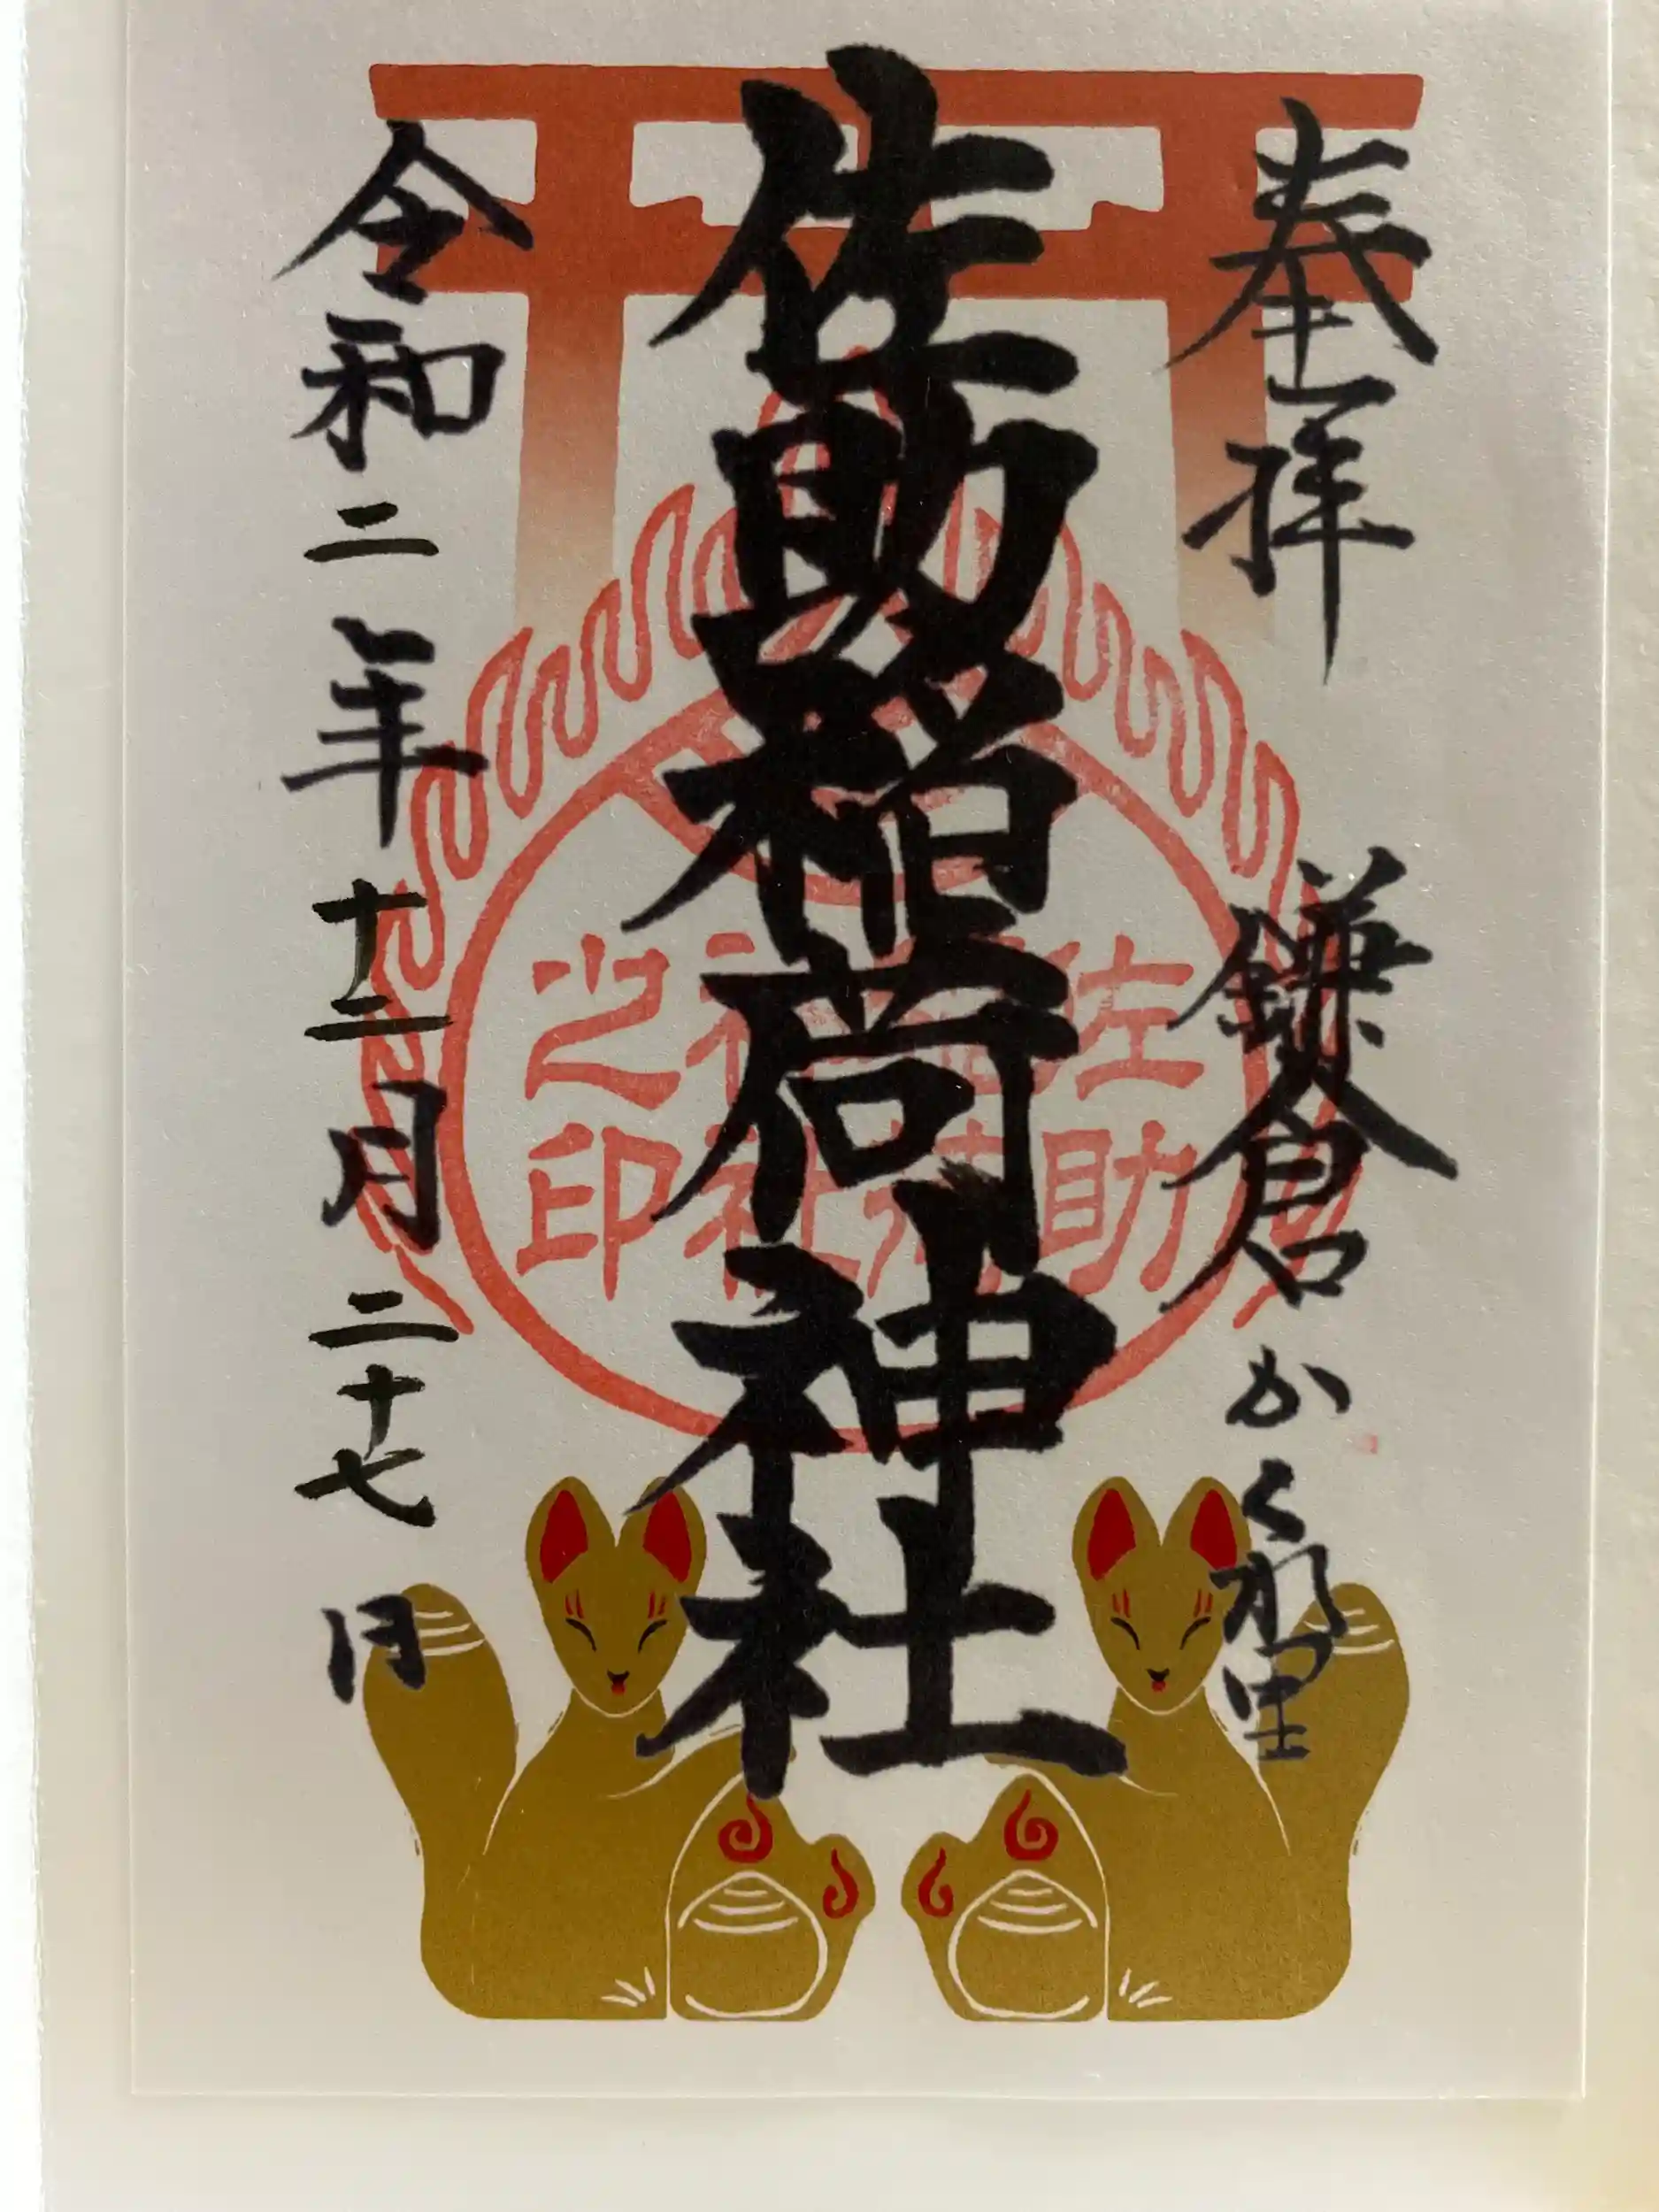 奉拝 鎌倉かくれ里
佐助稲荷神社
佐助稲荷神社之印
令和二年十二月二十七日